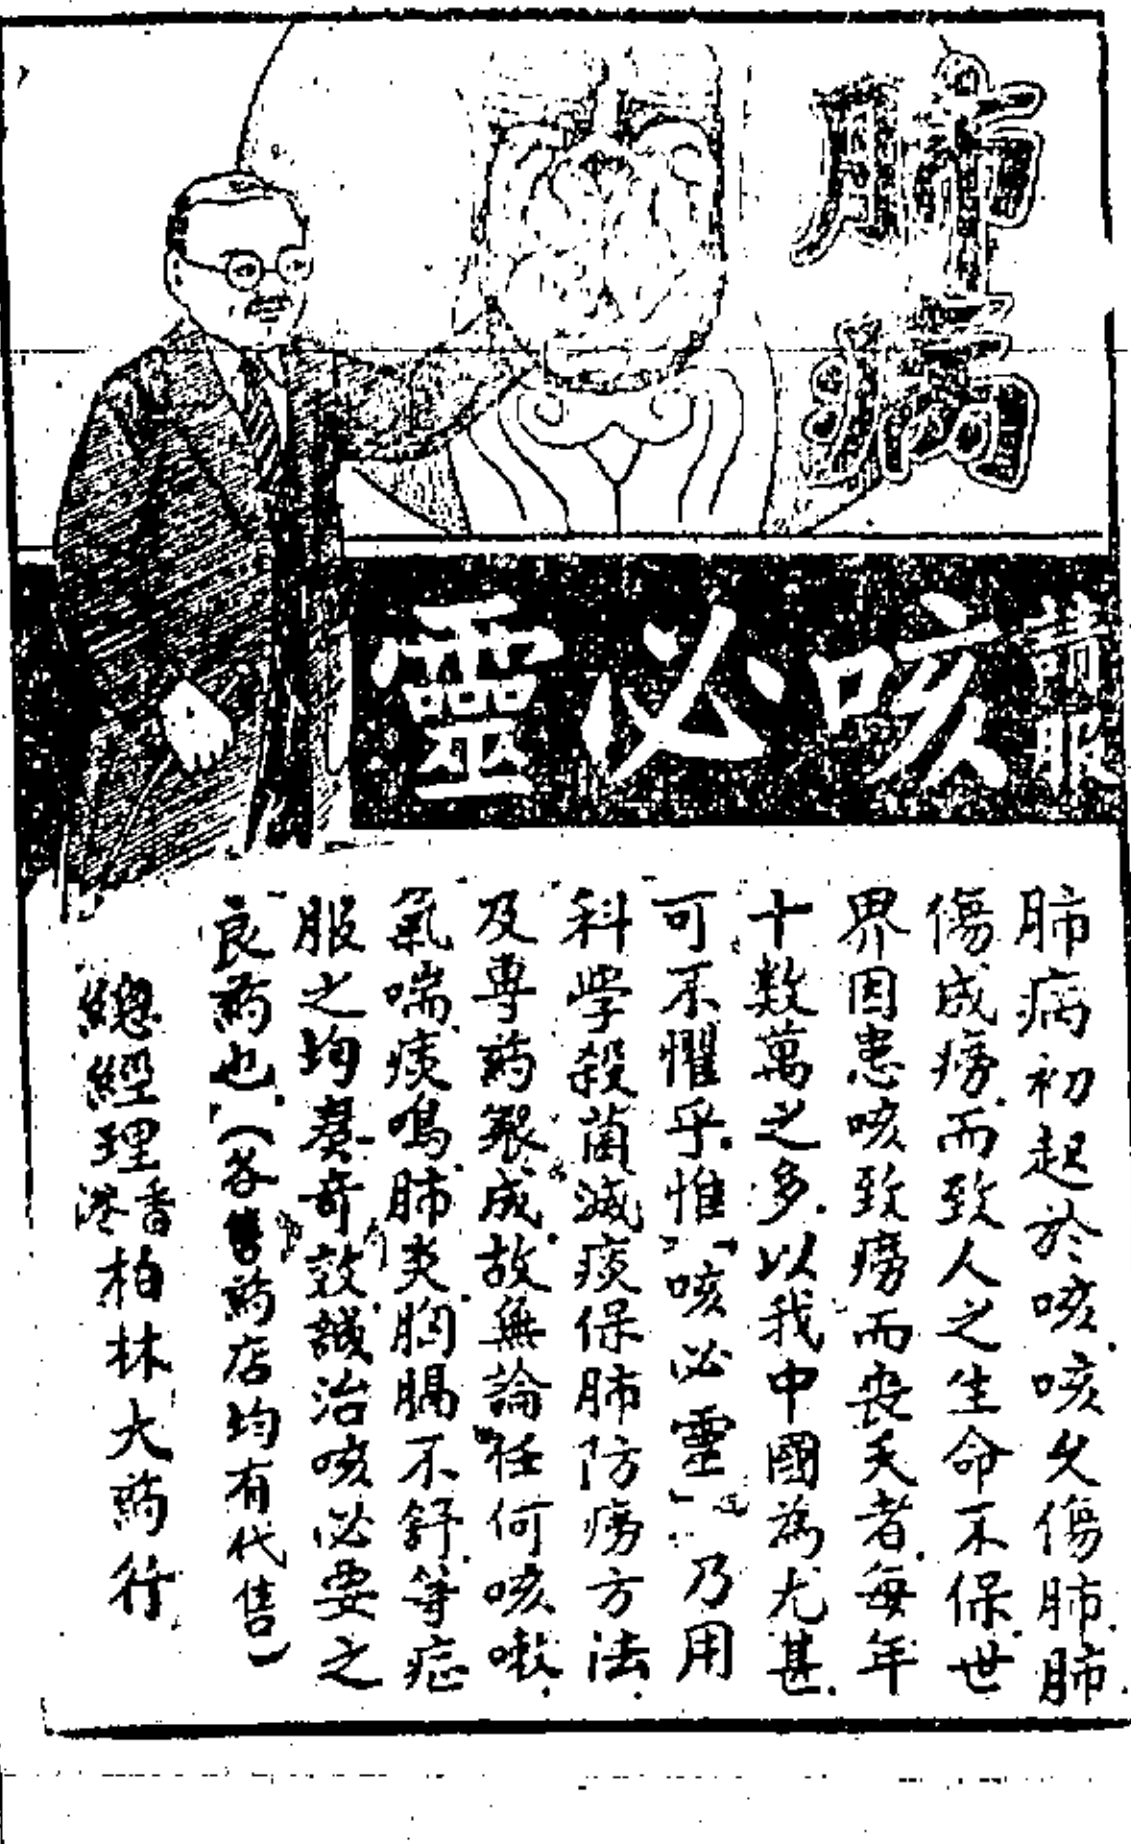 肺病
請服
咳必靈
肺病初起於咳.咳久傷肺.肺
傷成癆.而致人之生命不保.世
界因患咳致癆而丧夭者.每年
十数萬之多.以我中國為尤甚.
可不懼乎.惟「咳必靈」乃用
科学殺菌滅痰保肺防癆方法.
及専药製成.故無論任何咳嗽.
氣喘.痰鳴.肺炎.胸膈不舒.等症
服之均奏奇效.誠治咳必要之
良药也.(各 药店均有代售)
總經理香港柏林大药行